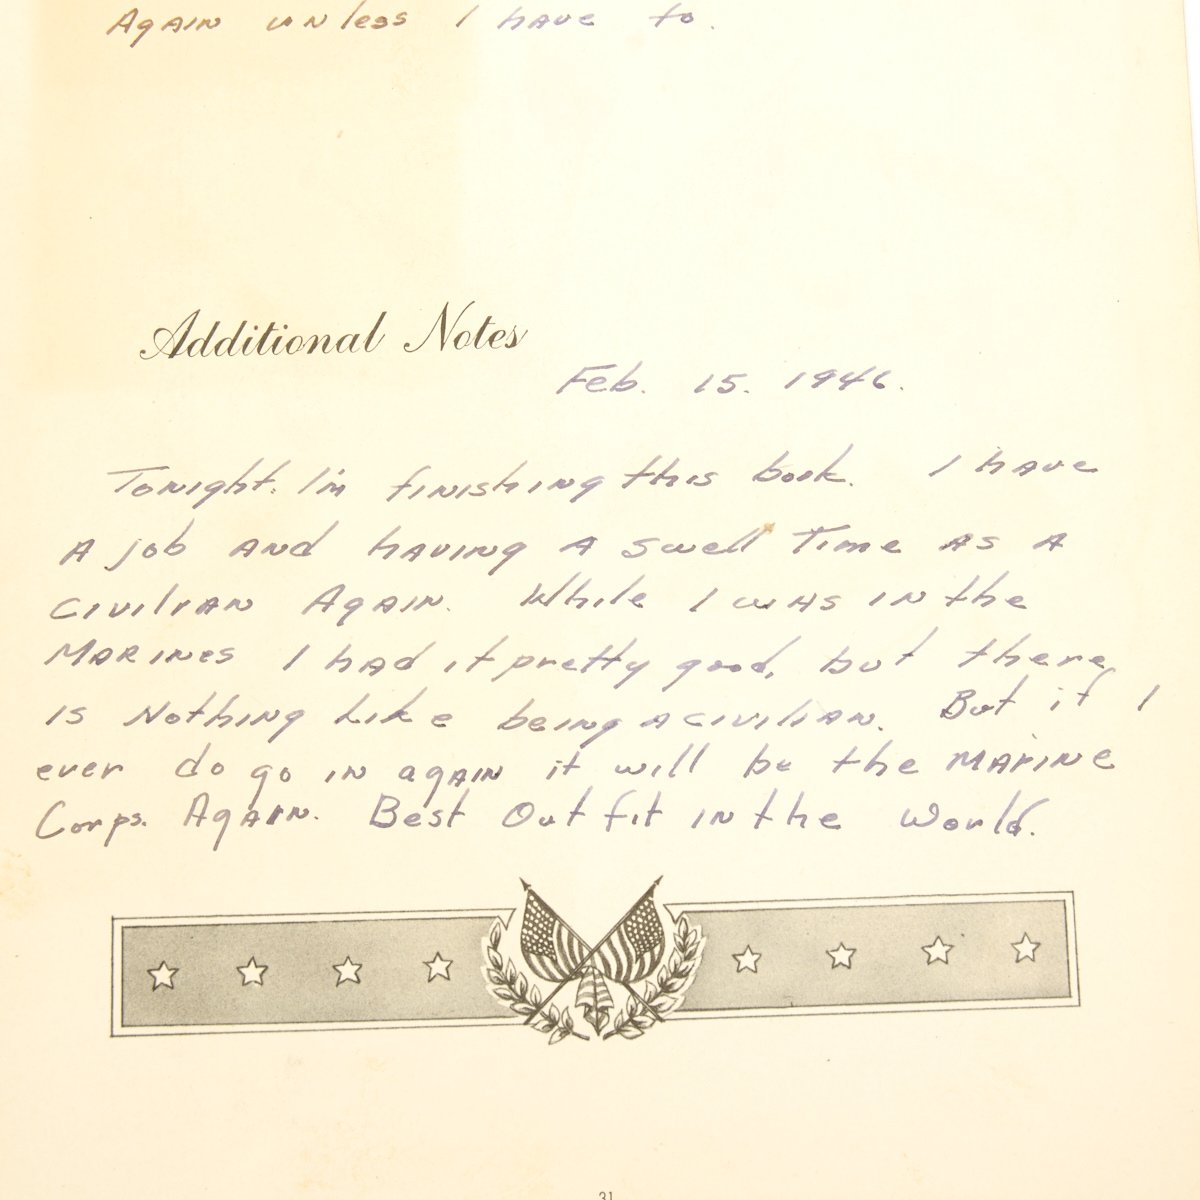 Again unless I have to.
Additional Notes
Feb. 15. 1946.
Tonight. I'm finishing this book. I have
A job and having A swell Time as A
civilian Again. While I was in the
Marines I had it pretty good, but there
is Nothing Like being a civilian. But if I
ever do go in again it will be the Marine
Corps. Again. Best Outfit in the World.
31